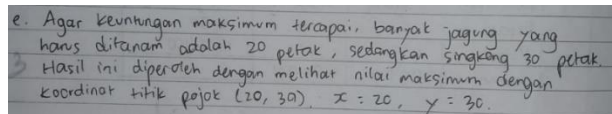 e. Agar keuntungan maksimum tercapai, banyak jagung yang
harus ditanam adalah 20 petak, sedangkan singkong 30 petak.
3 Hasil ini diperoleh dengan melihat nilai maksimum dengan
koordinat titik pojok (20, 30). x = 20, y = 30.